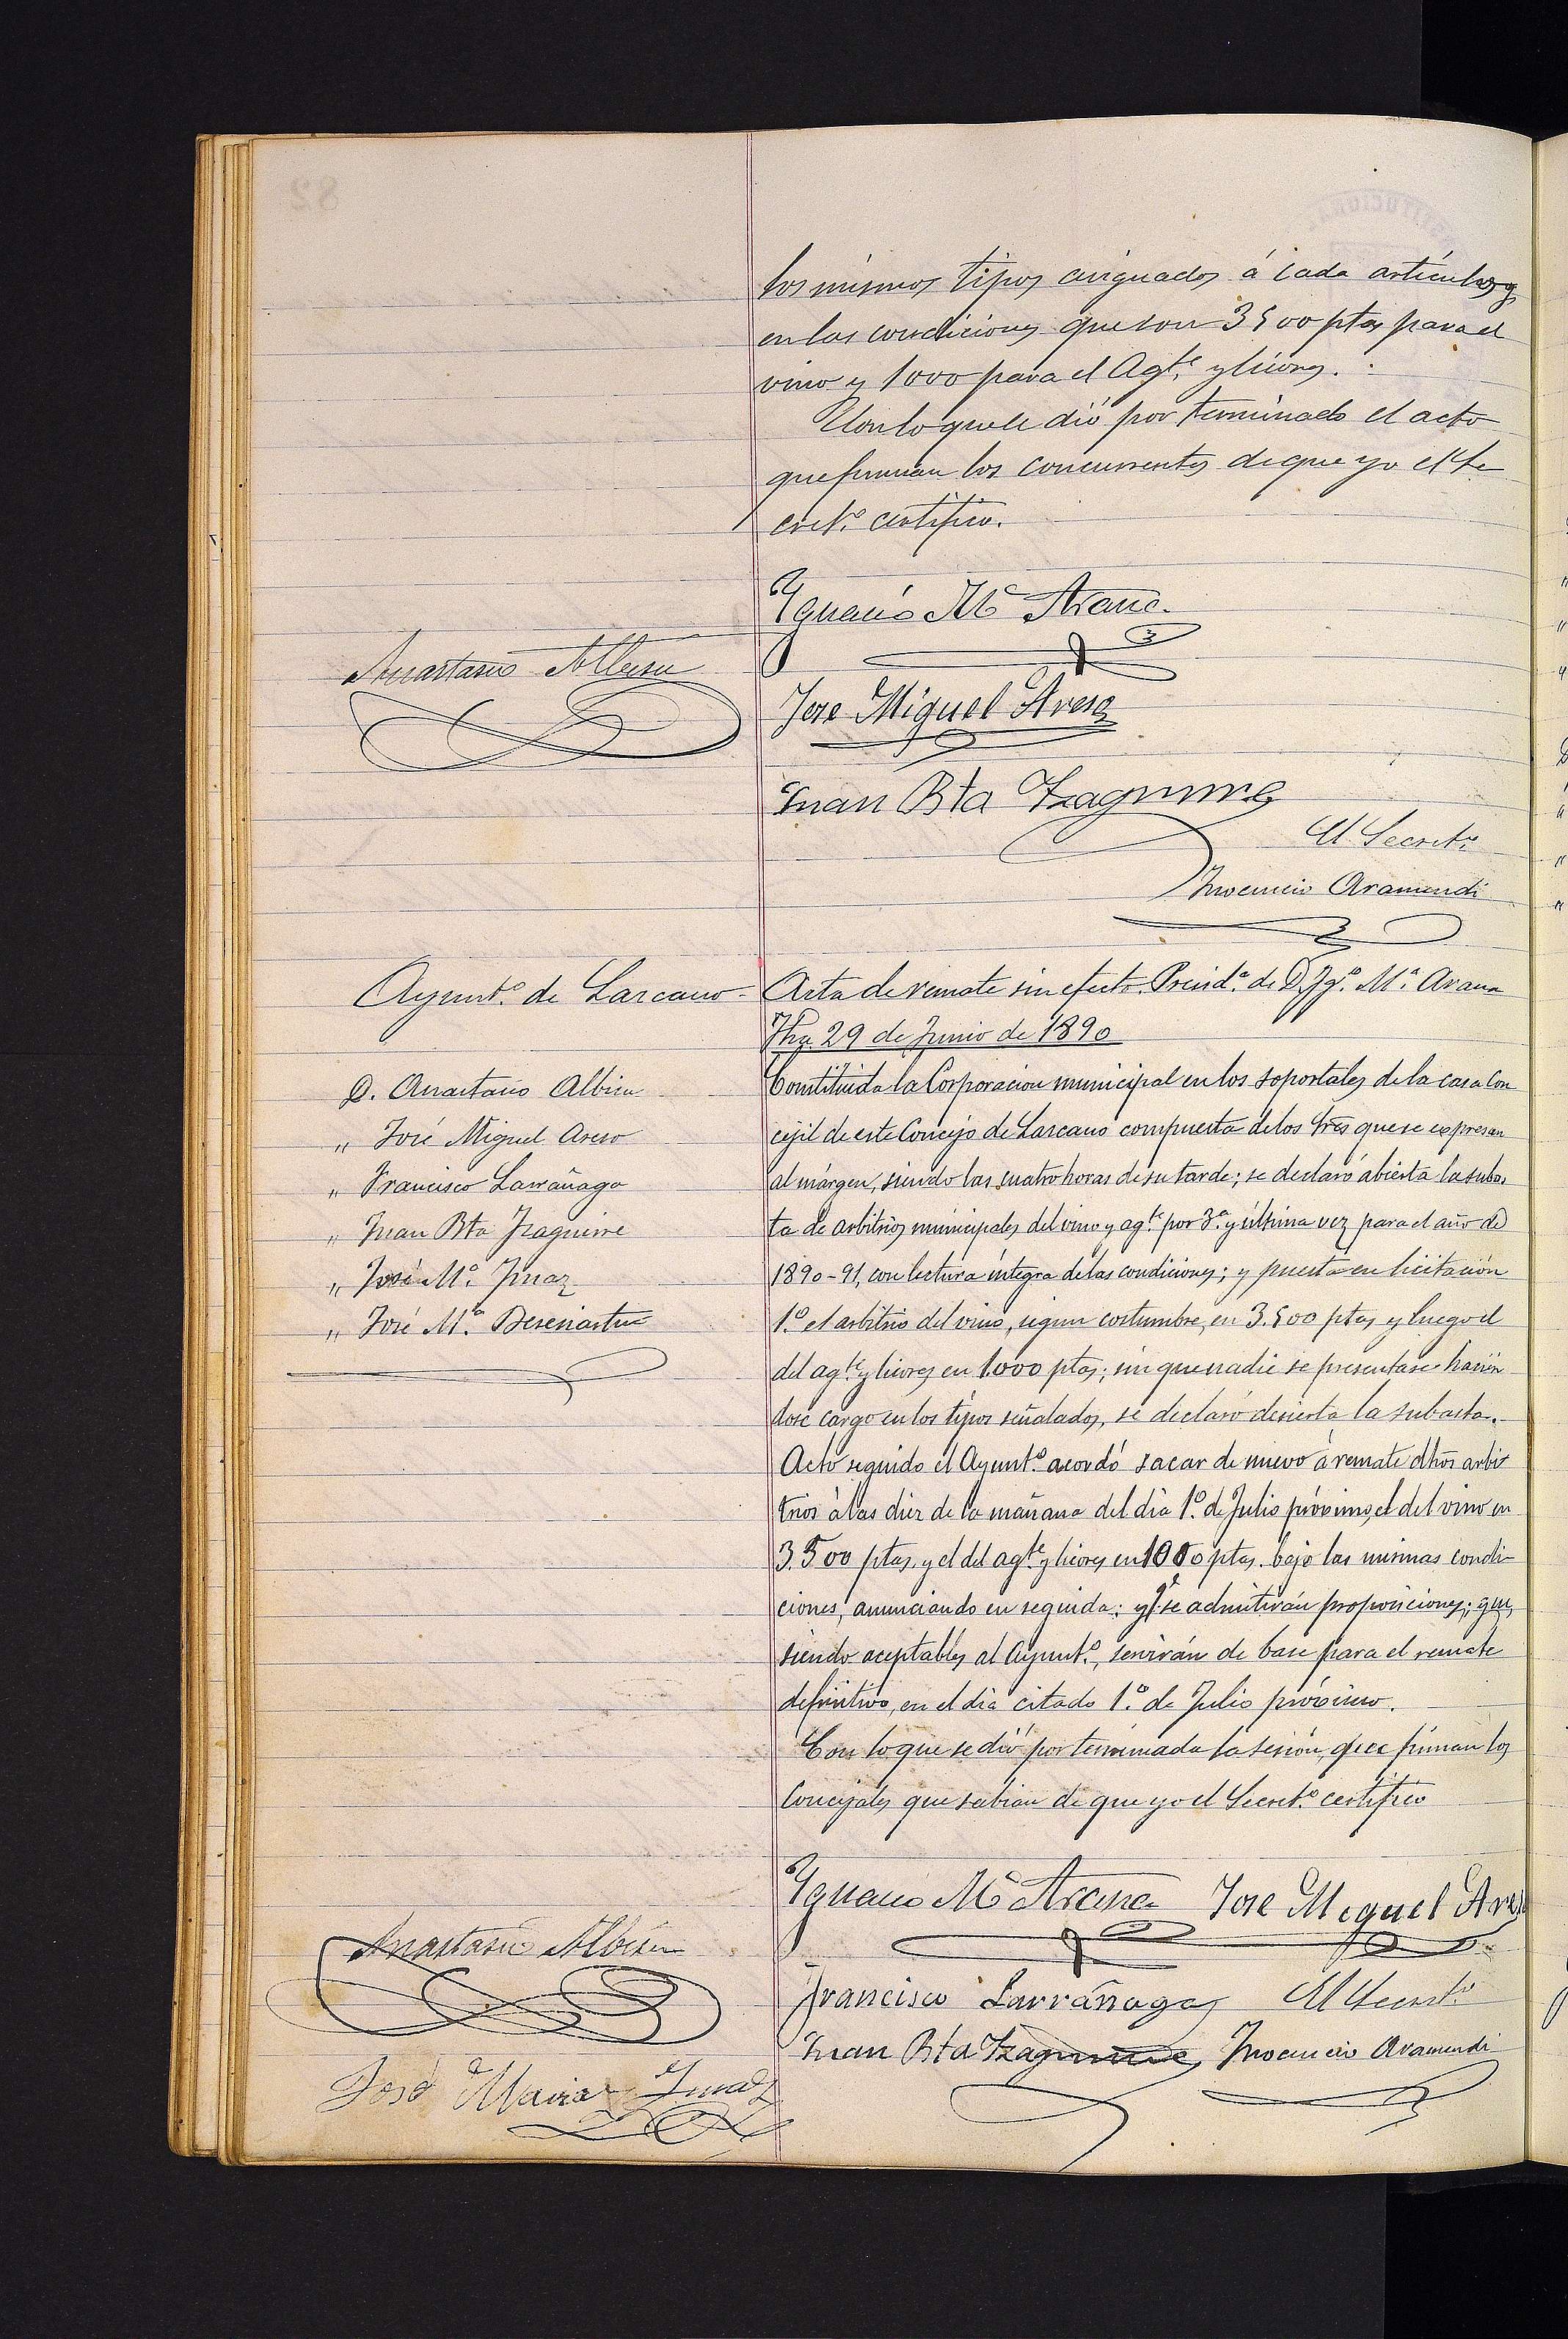 los mismos tipos asignados á cada artículo y
en las condiciones que son 3500 ptas para el
vino y 1000 para el Agte. y licores.
Con lo que se dió por terminado el acto
que firman los concurrentes de que yo el Se
cretº. certifico.
Ygnacio Mª Arana
Anastasio Albisu
Jose Miguel Areso
Juan Bta Yzaguirre
El Secretº.
Ynocencio Aramendi
Ayuntº. de Lazcano
Acta de remate sin efecto. Presidª. de D. Jgº. Mª. Arana
Fha. 29 de Junio de 1890
D. Anastasio Albisu
„ José Miguel Areso
„ Francisco Larrañaga
„ Juan Bta Yzaguirre
„ José Mª. Ymaz
„ José Mª.
Constituida la Corporacion municipal en los soportales de la casa Con
cejil de este Concejo de Lazcano compuesta de los Sres que se expresan
al márgen, siendo las cuatro horas de su tarde; se declaró abierta la subas
ta de arbitrios municipales del vino y agte. por 3ª. y última vez para el año de
1890-91, con lectura integra de las condiciones; y puesta en licitación
1º. el arbitrio del vino, segun costumbre, en 3.500 ptas y luego el
del agte. y licores en 1.000 ptas; sin que nadie se presentase hacién
dose cargo en los tipos señalados, se declaró desierta la subasta.
Acto seguido el Ayuntº. acordó sacar de nuevo á remate dhos arbi
trios á las diez de la mañana del dia 1º. de Julio próximo, el del vino en
3.500 ptas. y el del agte. y licores en 1000 ptas. bajo las mismas condi-
ciones, anunciando en seguida: y se admitirán proposiciones; que,
siendo aceptables al Ayuntº., servirán de base para el remate
definitivo, en el dia citado 1º. de Julio próximo.
Con lo que se dió por terminada la sesión, que firman los
Concejales que sabian de que yo el Secretº. certifico
Ygnacio Mª Arana Jose Miguel Areso
Anastasio Albisu
Francisco Larrañaga El Secretº.
Juan Bta Yzaguirre Ynocencio Aramendi
José Maria Ymaz